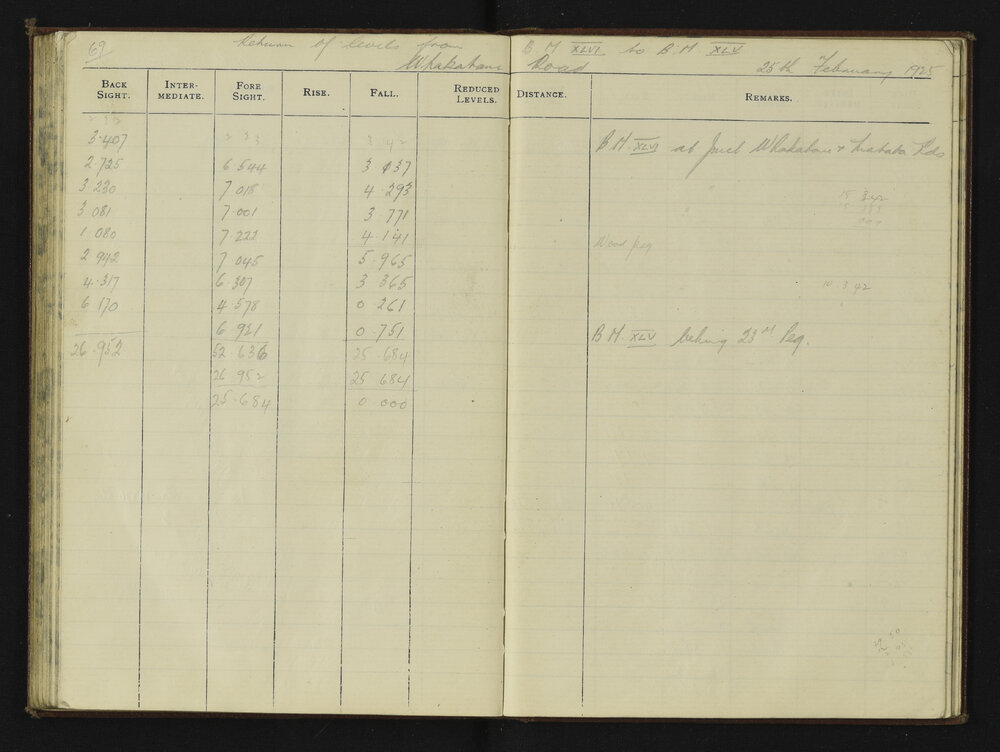 69 Return of levels from B.M XLVI to B.M XLV
Whakatane Road 25th February 1925
BACK SIGHT. INTER-MEDIATE. FORE SIGHT. RISE. FALL. REDUCED LEVELS. DISTANCE. REMARKS.
3.407 B.M. XLVI at Junct Whakatane & Rds
2.725 6.544 3.137
3 230 7.018 4.293
3 081 7.001 3.771
1.080 7.222 4.141 Wood peg
2 942 7 045 5.965
4.317 6.307 3 365 10.342
6 170 4.578 0.261
6 921 0.751 B.M. XLV behing 23M Peg.
26.952 52.636 25.684
26 952 25 684
25.684 0 000